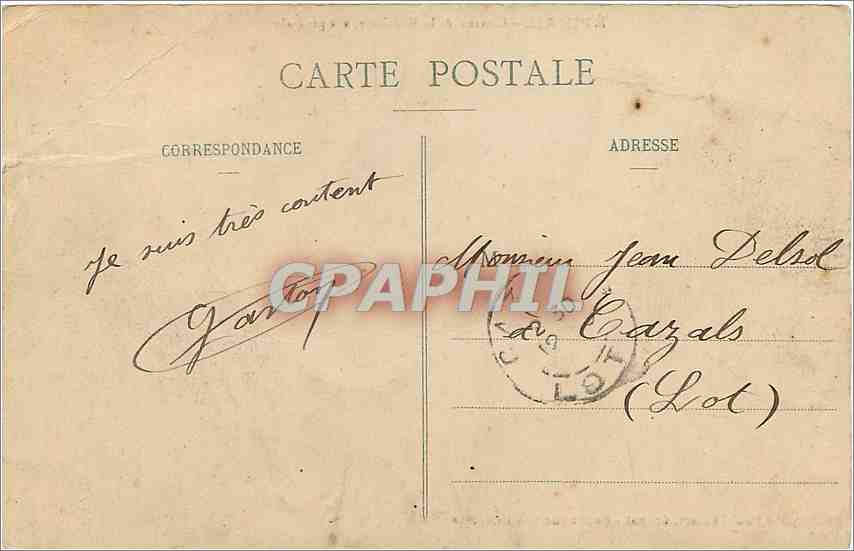 CARTE POSTALE
CORRESPONDANCE
Je suis très content
Gaston
ADRESSE
Monsieur Jean Delsol
à Cazals
(Lot)
LOT
CPAPHIL